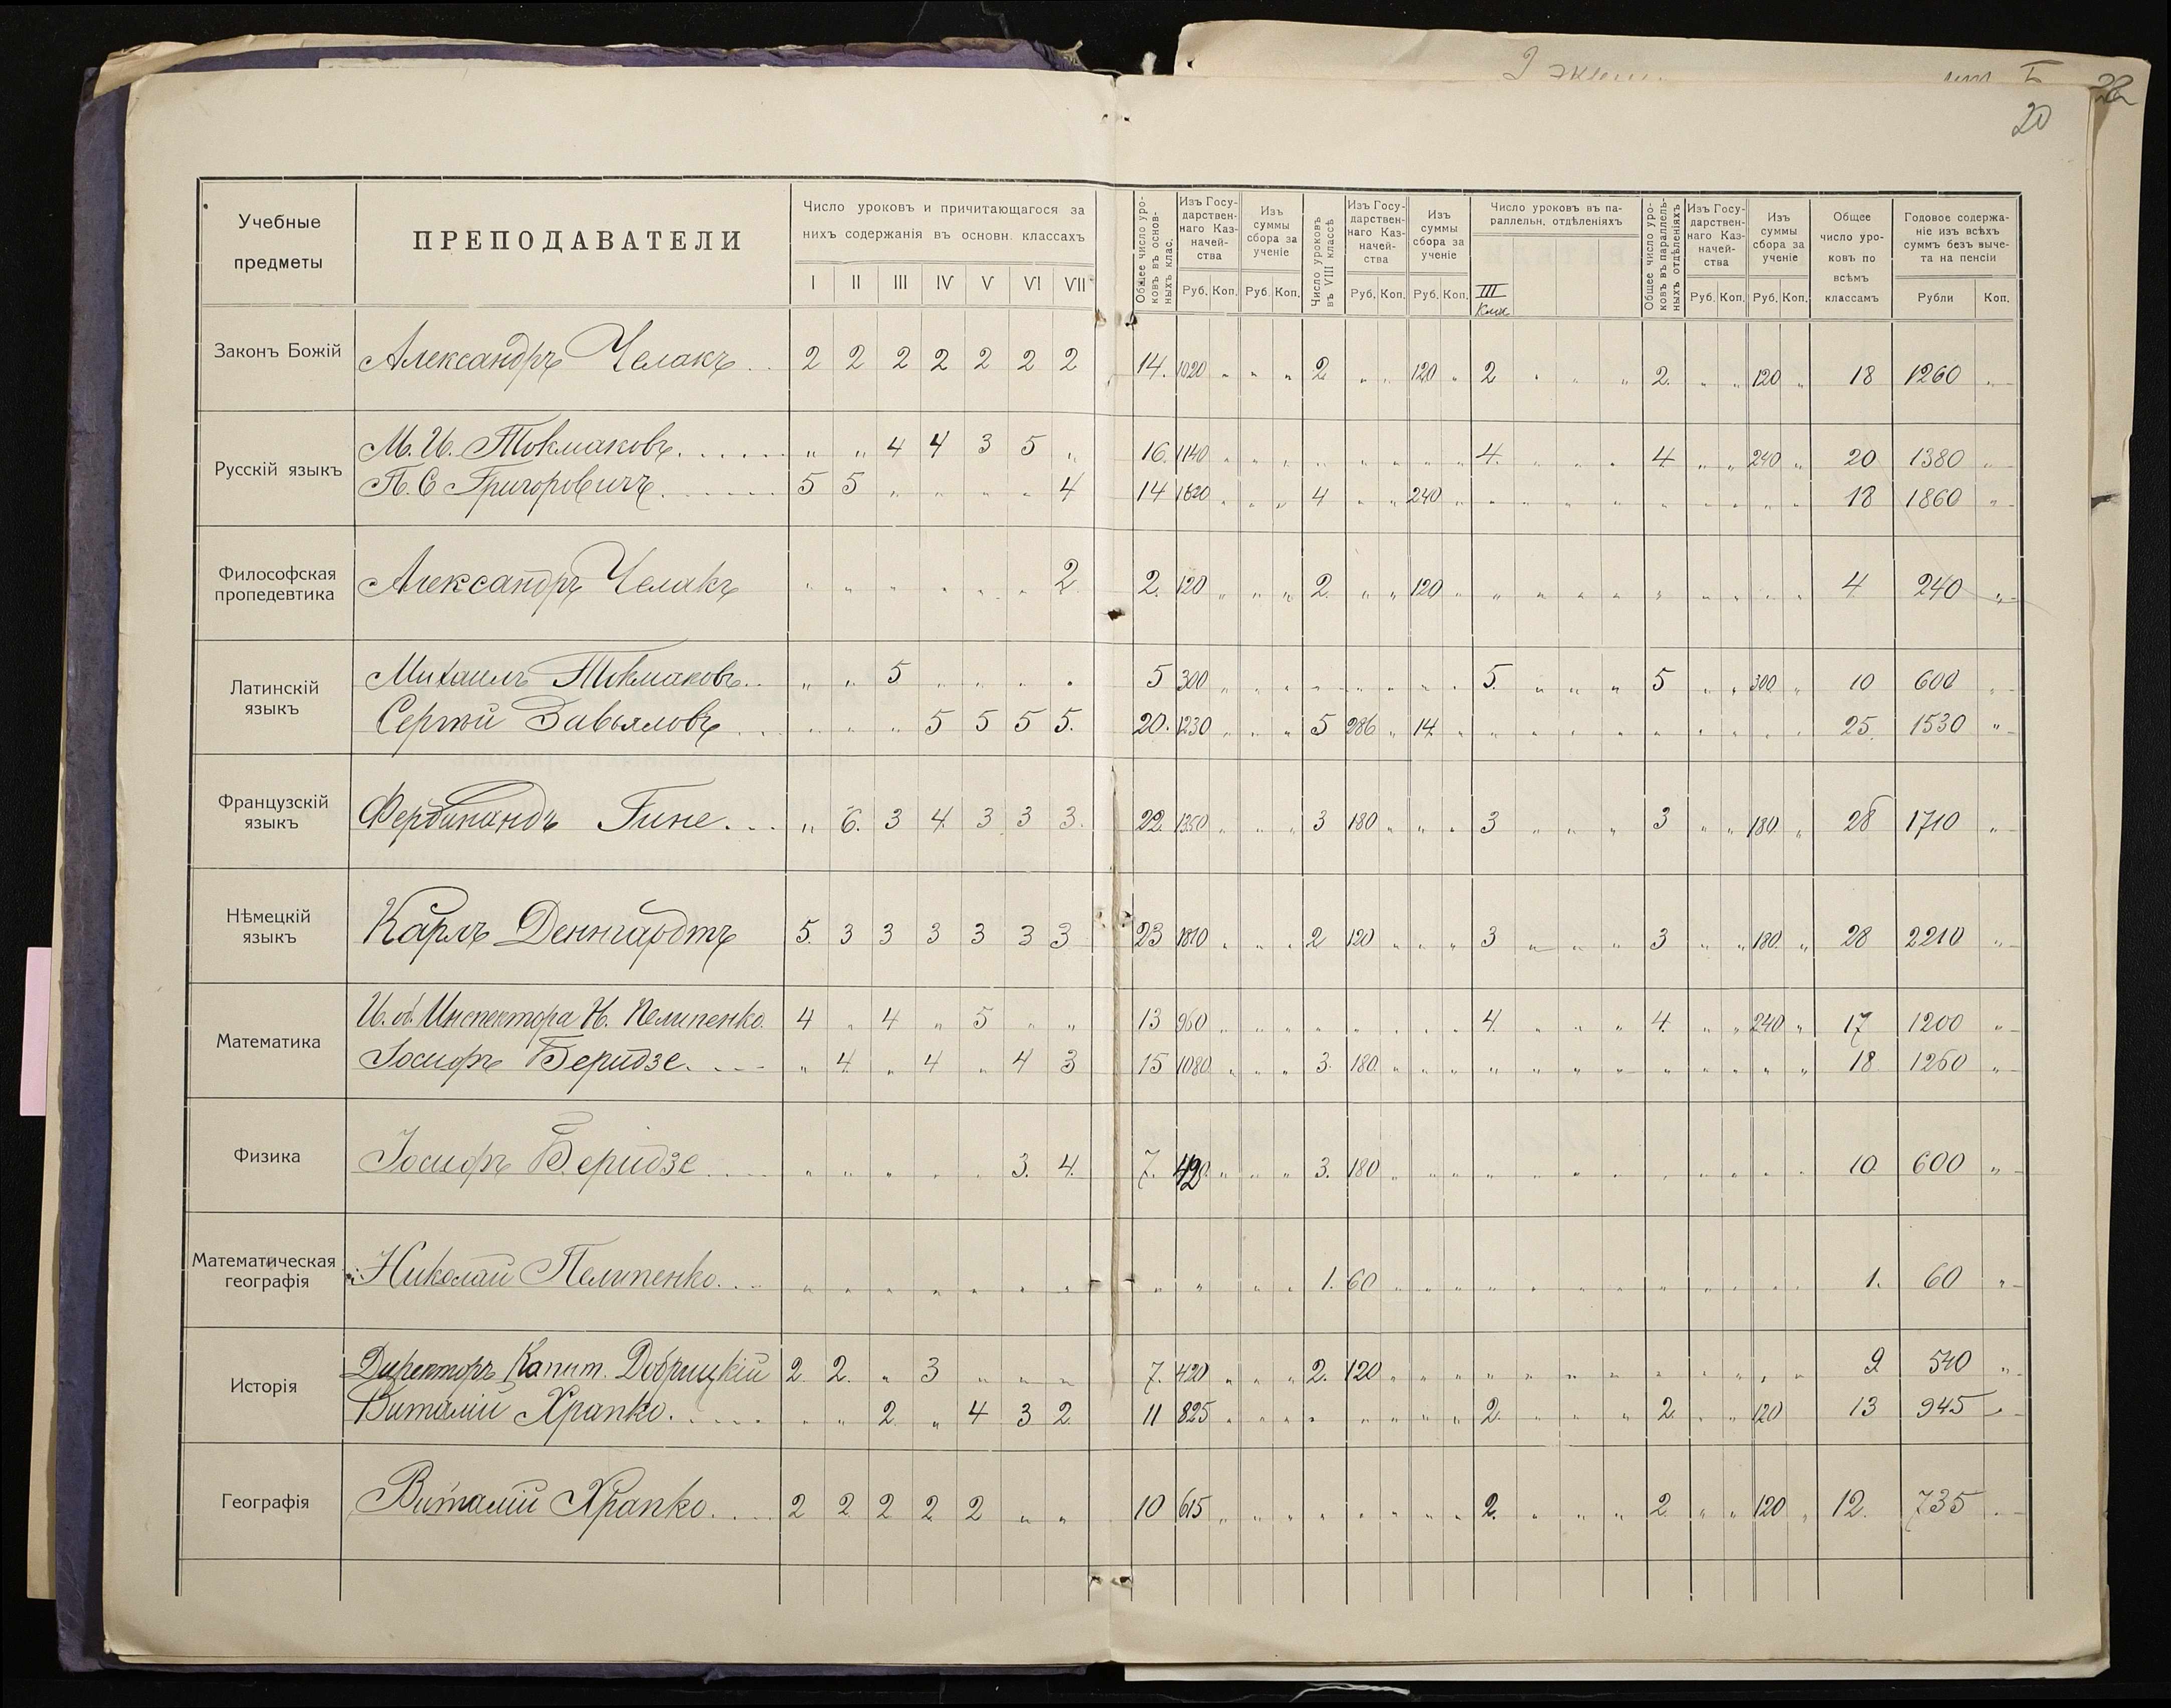 20
Учебные предметы
ПРЕПОДАВАТЕЛИ
Число уроковъ и причитающагося за
нихъ содержанія въ основн. классахъ
I II III IV V VI VII
Общее число уро-
ковъ въ основ-
ныхъ клас.
Изъ Госу-
дарствен-
наго Каз-
начей-
ства
Руб. Коп.
Изъ
суммы
сбора за
ученіе
Руб. Коп.
Число уроковъ
въ VIII классѣ
Изъ Госу-
дарствен-
наго Каз-
начей-
ства
Руб. Коп.
Изъ
суммы
сбора за
ученіе
Руб. Коп.
Число уроковъ въ па-
раллельн. отдѣленіяхъ
III
Общее число уро-
ковъ въ параллель-
ныхъ отдѣленіяхъ
Изъ Госу-
дарствен-
наго Каз-
начей-
ства
Руб. Коп.
Изъ
суммы
сбора за
ученіе
Руб. Коп.
Общее
число уро-
ковъ по
всѣмъ
классамъ
Годовое содержа-
ніе изъ всѣхъ
суммъ безъ выче-
та на пенсіи
Рубли Коп.
Законъ Божій Александръ Челакъ 2 2 2 2 2 2 2 14. 1020 " " " 2 " " 120 " 2 " " " 2. " " 120 " 18 1260 "
Русскій языкъ
М. И. Токмаковъ " " 4 4 3 5 " 16. 1140 " " " " " " " " 4. " " " 4. " " 240 " 20 1380 "
П. С Григоровичъ 5 5 " " " " 4 14 1620 " " " 4 " " 240 " " " " " " " " " " 18 1860 "
Философская
пропедевтика
Александръ Челакъ " " " " " " 2. 2. 120 " " " 2. " " 120 " " " " " " " " " " 4 240 "
Латинскій
языкъ
Михаилъ Токмаковъ " " 5 " " " " 5 300 " " " " " " " " 5. " " " 5 " " 300 " 10 600 "
Сергѣй Завьяловъ " " " 5 5 5 5. 20. 1230 " " " 5 286 " 14. " " " " " " " " " " 25. 1530 "
Французскій
языкъ
Фердинандъ Гине " 6. 3 4. 3 3 3. 22. 1350 " " " 3 180 " " " 3 " " " 3 " " 180. " 28 1710 "
Нѣмецкій
языкъ
Карлъ Деннгардтъ 5. 3 3 3 3 3 3 23 1810 " " " 2 120 " " " 3 " " " 3 " " 180. " 28 2210 "
Математика
И. об. Инспектора Н. Пелипенко. 4 " 4 " 5 " " 13 960 " " " " " " " " 4. " " " 4. " " 240 " 17 1200 "
Іосифъ Беридзе. " 4. " 4 " 4 3 15 1080 " " " 3. 180. " " " " " " " " " " " " 18. 1260 "
Физика Іосифъ Беридзе " " " " " 3. 4. 7. 420. " " " 3. 180 " " " " " " " " " " " " 10. 600 "
Математическая
географія
Николай Пелипенко. " " " " " " " " " " " 1. 60 " " " " " " " " " " " " 1. 60 "
Исторія
Директоръ Капит. Добрицкій 2. 2. " 3 " " " 7. 420 " " " 2. 120 " " " " " " " " " " " " 9 540 "
Виталій Храпко. " " 2. " 4 3 2 11 825 " " " " " " " " 2. " " " 2. " " 120 13 945 "
Географія Виталій Храпко. 2 2 2 2 2 " " 10 615 " " " " " " " " 2. " " " 2. " " 120 " 12. 735 "